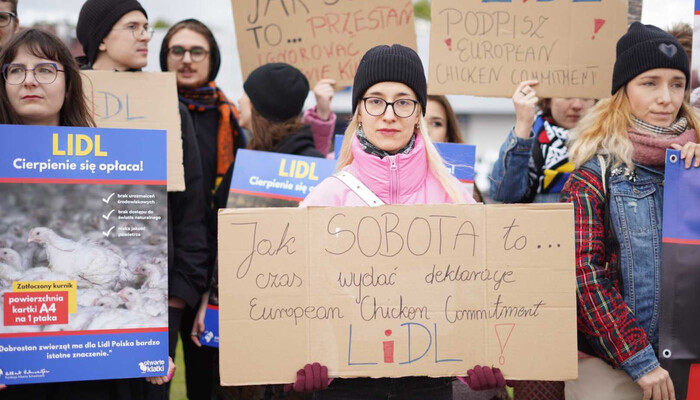 JAK S
TO... PRZESTAŃ
IGNOROWAĆ
PODPISZ
EUROPEAN
CHICKEN COMMITMENT
!
LIDL
LIDL
Cierpienie się opłaca!
brak urozmaiceń
środowiskowych
brak dostępu do światła
naturalnego
brak świeżego
powietrza
Zatłoczony kurnik
powierzchnia
kartki A4
na 1 ptaka
"Dobrostan zwierząt ma dla Lidl Polska bardzo
istotne znaczenie."
otwarte
klatki
LIDL
Cierpienie się opłaca!
Jak SOBOTA to...
czas wydać deklarację
European Chicken Commitment
LiDL !